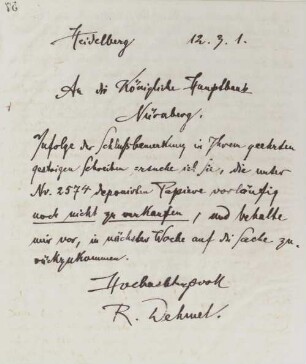 Heidelberg 12. 3. 1.
An die Königliche Hauptbank
Nürnberg.
Infolge der Schlußbemerkung in Ihrem geehrten
gestrigen Schreiben ersuche ich Sie, die unter
Nr. 2574 deponirten Papiere vorläufig
noch nicht zu verkaufen, und behalte
mir vor, in nächster Woche auf die Sache zu-
rückzukommen.
Hochachtungsvoll
R. Dehmel.